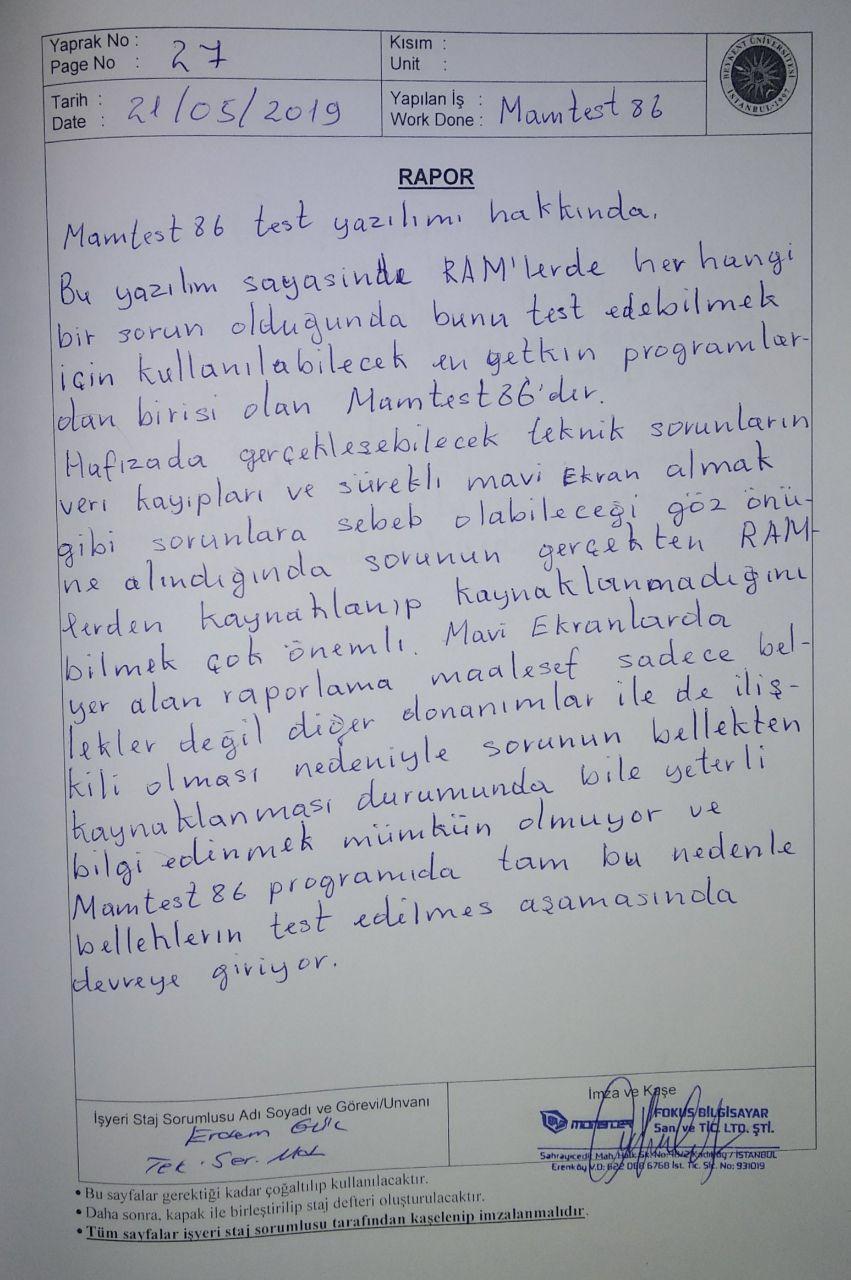 Yaprak No :
Page No : 27
Kısım :
Unit :
BEYKENT ÜNİVERSİTESİ
İSTANBUL-1997
Tarih :
Date : 21/05/2019
Yapılan İş :
Work Done : Mamtest 86
RAPOR
Mamtest 86 test yazılımı hakkında.
Bu yazılım sayasinde RAM'lerde her hangi
bir sorun olduğunda bunu test edebilmek
için kullanılabilecek en yetkin programlar-
dan birisi olan Mamtest86'dır.
Hafızada gerçekleşebilecek teknik sorunların
veri kayıpları ve sürekli mavi Ekran almak
gibi sorunlara sebeb olabileceği göz önü-
ne alındığında sorunun gerçekten RAM-
lerden kaynaklanıp kaynaklanmadığını
bilmek çok önemli. Mavi Ekranlarda
yer alan raporlama maalesef sadece bel-
lekler değil diğer donanımlar ile de iliş-
kili olması nedeniyle sorunun bellekten
kaynaklanması durumunda bile yeterli
bilgi edinmek mümkün olmuyor ve
Mamtest 86 programıda tam bu nedenle
belleklerin test edilmes aşamasında
devreye giriyor.
İşyeri Staj Sorumlusu Adı Soyadı ve Görevi/Unvanı
Erdem
Tek. Ser.
İmza ve Kaşe
FOKUS BİLGİSAYAR
San. ve TİC. LTD. ŞTİ.
Kadıköy / İSTANBUL
Erenköy V.D: 6768 İst. Tic. Sic. No: 931019
• Bu sayfalar gerektiği kadar çoğaltılıp kullanılacaktır.
• Daha sonra, kapak ile birleştirilip staj defteri oluşturulacaktır.
• Tüm sayfalar işyeri staj sorumlusu tarafından kaşelenip imzalanmalıdır.